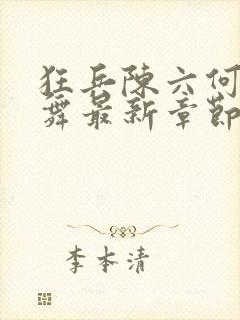 狂兵陳六何
舞最新章節
李本清